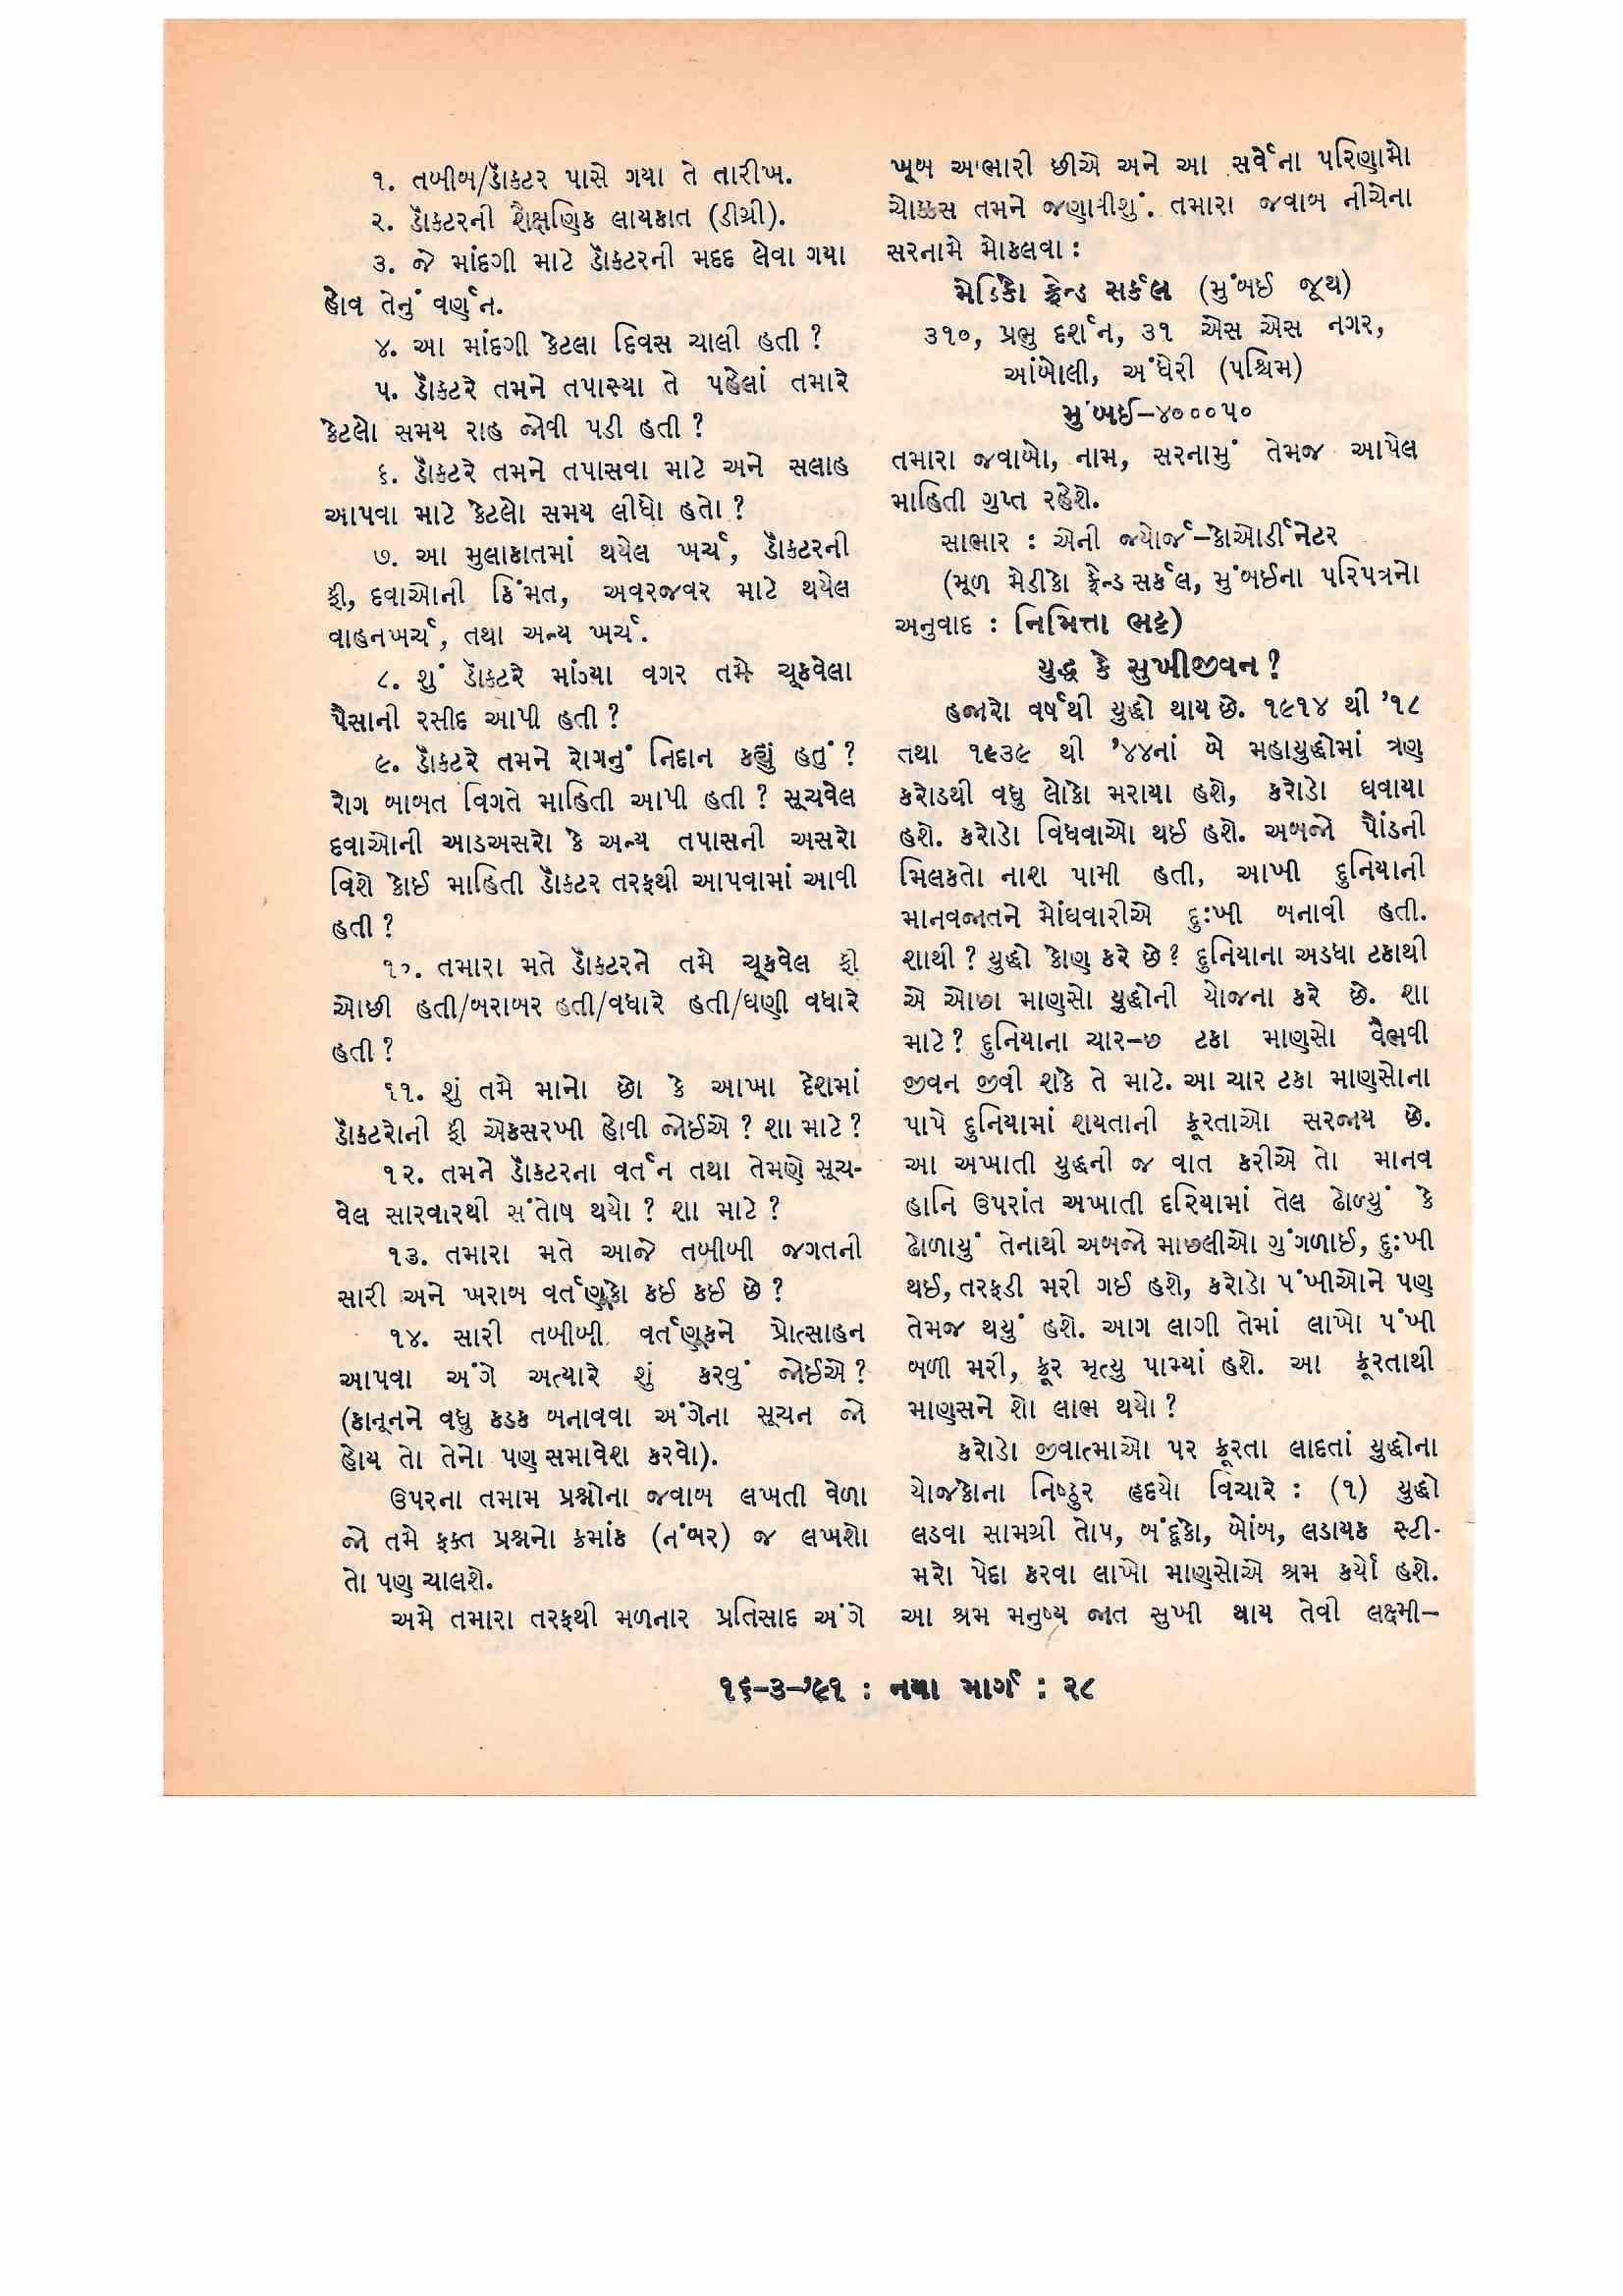 ૧. તબીબ/ડૉક્ટર પાસે ગયા તે તારીખ.
૨. ડૉક્ટરની શૈક્ષણિક લાયકાત (ડીગ્રી).
૩. જે માંદગી માટે ડૉક્ટરની મદદ લેવા ગયા
હોવ તેનું વર્ણન.
૪. આ માંદગી કેટલા દિવસ ચાલી હતી ?
૫. ડૉક્ટરે તમને તપાસ્યા તે પહેલાં તમારે
કેટલો સમય રાહ જોવી પડી હતી ?
૬. ડૉક્ટરે તમને તપાસવા માટે અને સલાહ
આપવા માટે કેટલો સમય લીધો હતો ?
૭. આ મુલાકાતમાં થયેલ ખર્ચ, ડૉક્ટરની
ફી, દવાઓની કિંમત, અવરજવર માટે થયેલ
વાહનખર્ચ, તથા અન્ય ખર્ચ.
૮. શું ડૉક્ટરે માંગ્યા વગર તમે ચૂકવેલા
પૈસાની રસીદ આપી હતી ?
૯. ડૉક્ટરે તમને રોગનું નિદાન કહ્યું હતું ?
રોગ બાબત વિગતે માહિતી આપી હતી ? સૂચવેલ
દવાઓની આડઅસરો કે અન્ય તપાસની અસરો
વિશે કોઈ માહિતી ડૉક્ટર તરફથી આપવામાં આવી
હતી ?
૧૦. તમારા મતે ડૉક્ટરને તમે ચૂકવેલ ફી
ઓછી હતી/બરાબર હતી/વધારે હતી/ઘણી વધારે
હતી ?
૧૧. શું તમે માનો છો કે આખા દેશમાં
ડૉક્ટરોની ફી એકસરખી હોવી જોઈએ ? શા માટે ?
૧૨. તમને ડૉક્ટરના વર્તન તથા તેમણે સૂચ-
વેલ સારવારથી સંતોષ થયો ? શા માટે ?
૧૩. તમારા મતે આજે તબીબી જગતની
સારી અને ખરાબ વર્તણૂકો કઈ કઈ છે ?
૧૪. સારી તબીબી વર્તણૂકને પ્રોત્સાહન
આપવા અંગે અત્યારે શું કરવું જોઈએ ?
(કાનૂનને વધુ કડક બનાવવા અંગેના સૂચન જો
હોય તો તેનો પણ સમાવેશ કરવો).
ઉપરના તમામ પ્રશ્નોના જવાબ લખતી વેળા
જો તમે ફક્ત પ્રશ્નનો ક્રમાંક (નંબર) જ લખશો
તો પણ ચાલશે.
અમે તમારા તરફથી મળનાર પ્રતિસાદ અંગે
ખૂબ આભારી છીએ અને આ સર્વેના પરિણામો
ચોક્કસ તમને જણાવીશું. તમારા જવાબ નીચેના
સરનામે મોકલવા :
મેડિકો ફ્રેન્ડ સર્કલ (મુંબઈ જૂથ)
૩૧૦, પ્રભુ દર્શન, ૩૧ એસ એસ નગર,
આંબોલી, અંધેરી (પશ્ચિમ)
મુંબઈ-૪૦૦૦૫૦
તમારા જવાબો, નામ, સરનામું તેમજ આપેલ
માહિતી ગુપ્ત રહેશે.
સાભાર : એની જ્યોર્જ-કોઓર્ડીનેટર
(મૂળ મેડીકો ફ્રેન્ડ સર્કલ, મુંબઈના પરિપત્રનો
અનુવાદ : નિમિત્તા ભટ્ટ)
યુદ્ધ કે સુખીજીવન ?
હજારો વર્ષથી યુદ્ધો થાય છે. ૧૯૧૪ થી '૧૮
તથા ૧૯૩૯ થી '૪૪નાં બે મહાયુદ્ધોમાં ત્રણ
કરોડથી વધુ લોકો મરાયા હશે, કરોડો ઘવાયા
હશે. કરોડો વિધવાઓ થઈ હશે. અબજો પૌંડની
મિલકતો નાશ પામી હતી, આખી દુનિયાની
માનવજાતને મોંઘવારીએ દુઃખી બનાવી હતી.
શાથી ? યુદ્ધો કોણ કરે છે ? દુનિયાના અડધા ટકાથી
એ ઓછા માણસો યુદ્ધોની યોજના કરે છે. શા
માટે ? દુનિયાના ચાર-છ ટકા માણસો વૈભવી
જીવન જીવી શકે તે માટે. આ ચાર ટકા માણસોના
પાપે દુનિયામાં શયતાની ક્રૂરતાઓ સરજાય છે.
આ અખાતી યુદ્ધની જ વાત કરીએ તો માનવ
હાનિ ઉપરાંત અખાતી દરિયામાં તેલ ઢોળ્યું કે
ઢોળાયું તેનાથી અબજો માછલીઓ ગુંગળાઈ, દુઃખી
થઈ, તરફડી મરી ગઈ હશે, કરોડો પંખીઓને પણ
તેમજ થયું હશે. આગ લાગી તેમાં લાખો પંખી
બળી મરી, ક્રૂર મૃત્યુ પામ્યાં હશે. આ ક્રૂરતાથી
માણસને શો લાભ થયો ?
કરોડો જીવાત્માઓ પર ક્રૂરતા લાદતાં યુદ્ધોના
યોજકોના નિષ્ઠુર હૃદયો વિચારે : (૧) યુદ્ધો
લડવા સામગ્રી તોપ, બંદૂકો, બોંબ, લડાયક સ્ટી-
મરો પેદા કરવા લાખો માણસોએ શ્રમ કર્યો હશે.
આ શ્રમ મનુષ્ય જાત સુખી થાય તેવી લક્ષ્મી-
૧૬-૩-'૯૧ : નયા માર્ગ : ૨૮